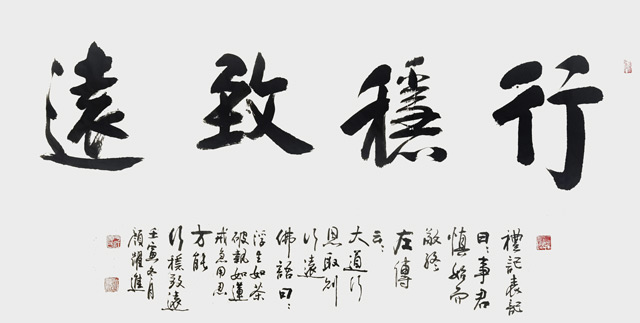 行穩致遠
禮記表記
曰：事君
慎始而
敬終
左傳
云：
大道行
思取則
行遠
佛語曰：
浮生如茶
破執如蓮
戒急用忍
方能
行穩致遠
壬寅冬月
躍進